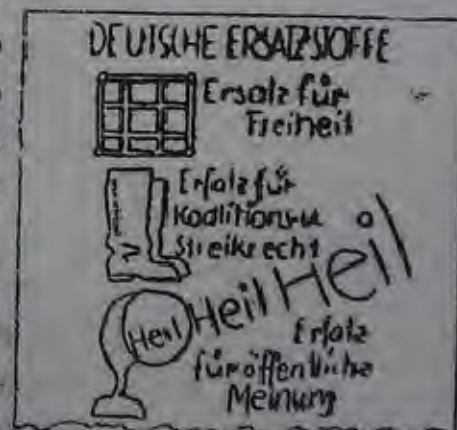 DEUTSCHE ERSATZSTOFFE
Ersatz für
Freiheit
Ersatz für
Koalitions-u.
Streikrecht
Heil Heil Heil
Ersatz
für öffentliche
Meinung